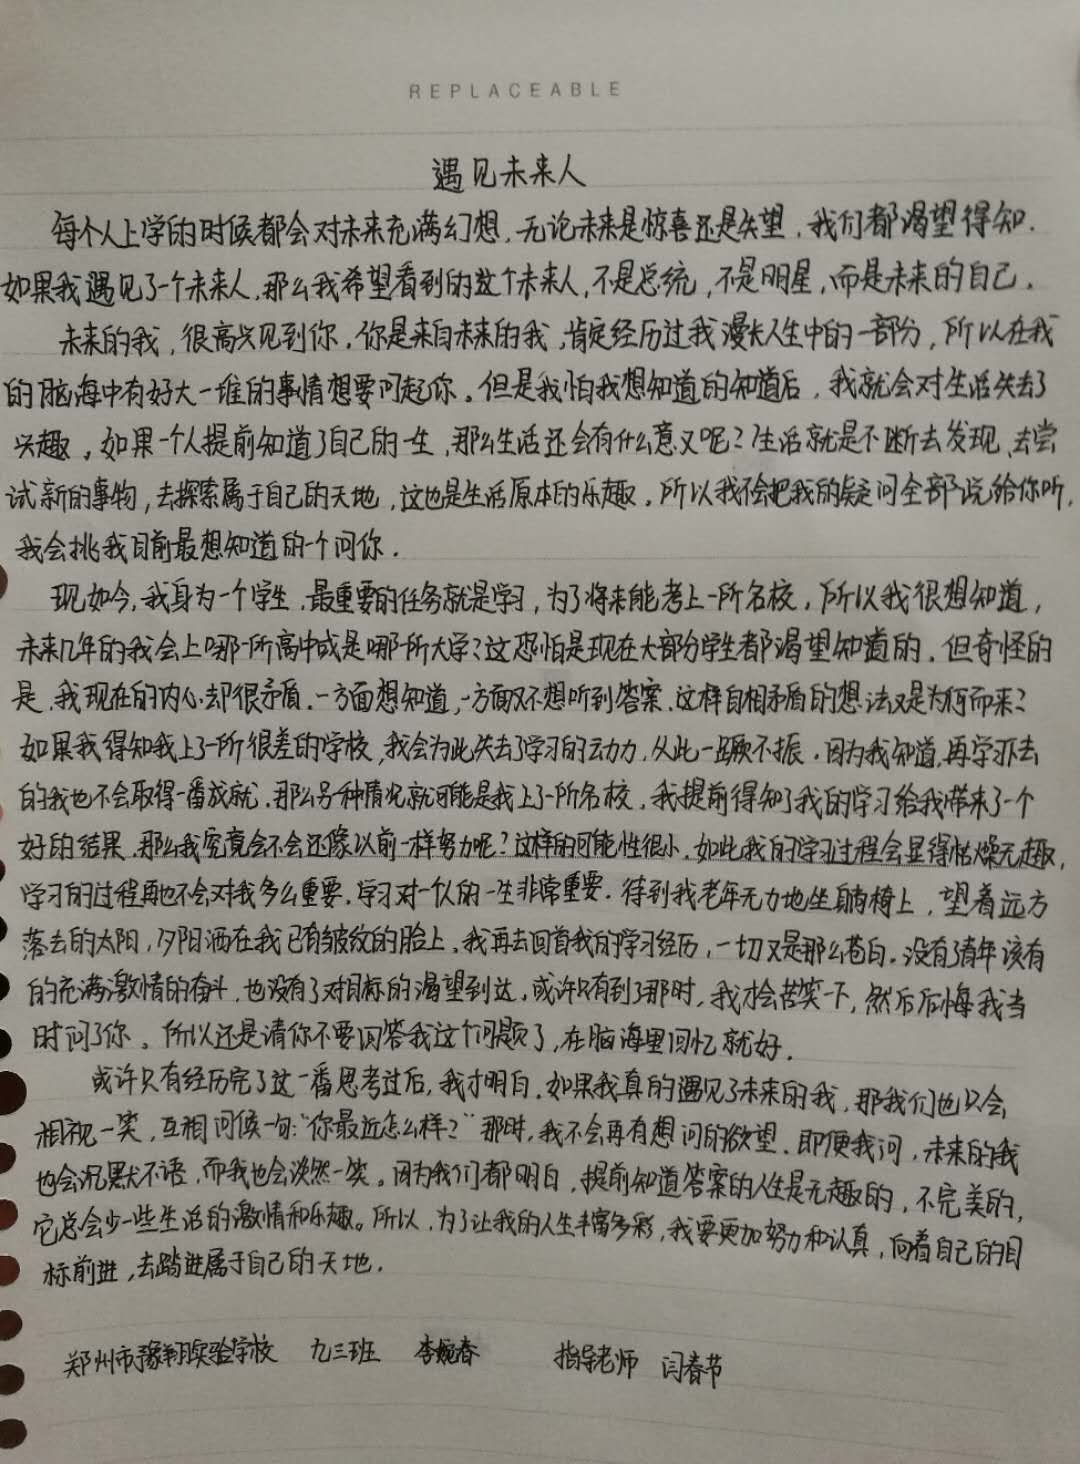 REPLACEABLE
遇见未来人
每个人上学的时候都会对未来充满幻想,无论未来是惊喜还是失望,我们都渴望得知.
如果我遇见了一个未来人,那么我希望看到的这个未来人,不是总统,不是明星,而是未来的自己.
未来的我,很高兴见到你,你是来自未来的我,肯定经历过我漫长人生中的一部分,所以在我
的脑海中有好大一堆的事情想要问起你。但是我怕我想知道的知道后,我就会对生活失去了
兴趣,如果一个人提前知道了自己的一生,那么生活还会有什么意义呢?生活就是不断去发现、去尝
试新的事物,去探索属于自己的天地,这也是生活原本的乐趣。所以我不会把我的疑问全部说给你听,
我会挑我目前最想知道的一个问你.
现如今,我身为一个学生,最重要的任务就是学习,为了将来能考上一所名校,所以我很想知道,
未来几年的我会上哪一所高中或是哪所大学?这恐怕是现在大部分学生都渴望知道的.但奇怪的
是,我现在的内心却很矛盾.一方面想知道,一方面又不想听到答案.这样自相矛盾的想法又是为何而来?
如果我得知我上了一所很差的学校,我会为此失去了学习的动力,从此一蹶不振.因为我知道,再学下去
的我也不会取得一番成就.那么另一种情况就可能是我上了一所名校,我提前得知了我的学习给我带来了一个
好的结果.那么我究竟会不会还像以前一样努力呢?这样的可能性很小.如此我的学习过程会显得枯燥无趣,
学习的过程再也不会对我多么重要.学习对一个人的一生非常重要.待到我老年无力地坐躺椅上,望着远方
落去的太阳,夕阳洒在我已有皱纹的脸上.我再去回首我的学习经历,一切又是那么苍白.没有了青年该有
的充满激情的奋斗,也没有了对目标的渴望到达,或许只有到了那时,我才会苦笑一下,然后后悔我当
时问了你。所以还是请你不要回答我这个问题了,在脑海里回忆就好.
或许只有经历完了这一番思考过后,我才明白.如果我真的遇见了未来的我,那我们也只会
相视一笑,互相问候一句:“你最近怎么样?”那时,我不会再有想问的欲望.即便我问,未来的我
也会沉默不语,而我也会淡然一笑。因为我们都明白,提前知道答案的人生是无趣的,不完美的,
它总会少一些生活的激情和乐趣。所以,为了让我的人生丰富多彩,我要更加努力和认真,向着自己的目
标前进,去踏进属于自己的天地.
郑州市豫翔实验学校 九三班 李婉春 指导老师 闫春节